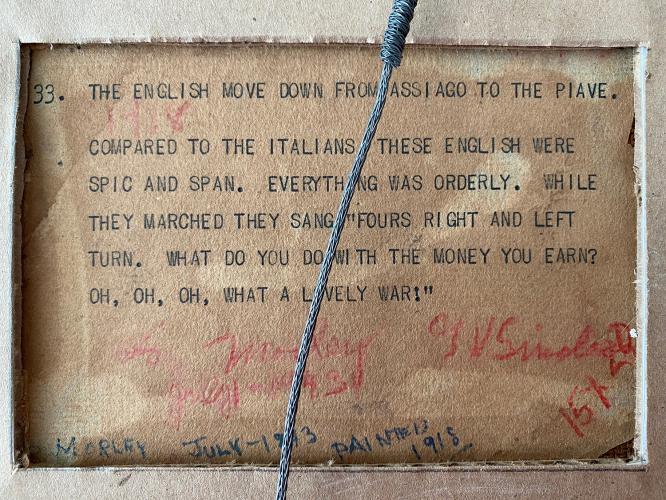 33. THE ENGLISH MOVE DOWN FROM ASSIAGO TO THE PIAVE.
1918
COMPARED TO THE ITALIANS THESE ENGLISH WERE
SPIC AND SPAN. EVERYTHING WAS ORDERLY. WHILE
THEY MARCHED THEY SANG "FOURS RIGHT AND LEFT
TURN. WHAT DO YOU DO WITH THE MONEY YOU EARN?
OH, OH, OH, WHAT A LOVELY WAR!"
Morley
July 1-1943
MORLEY JULY-1943 PAINTED
1918